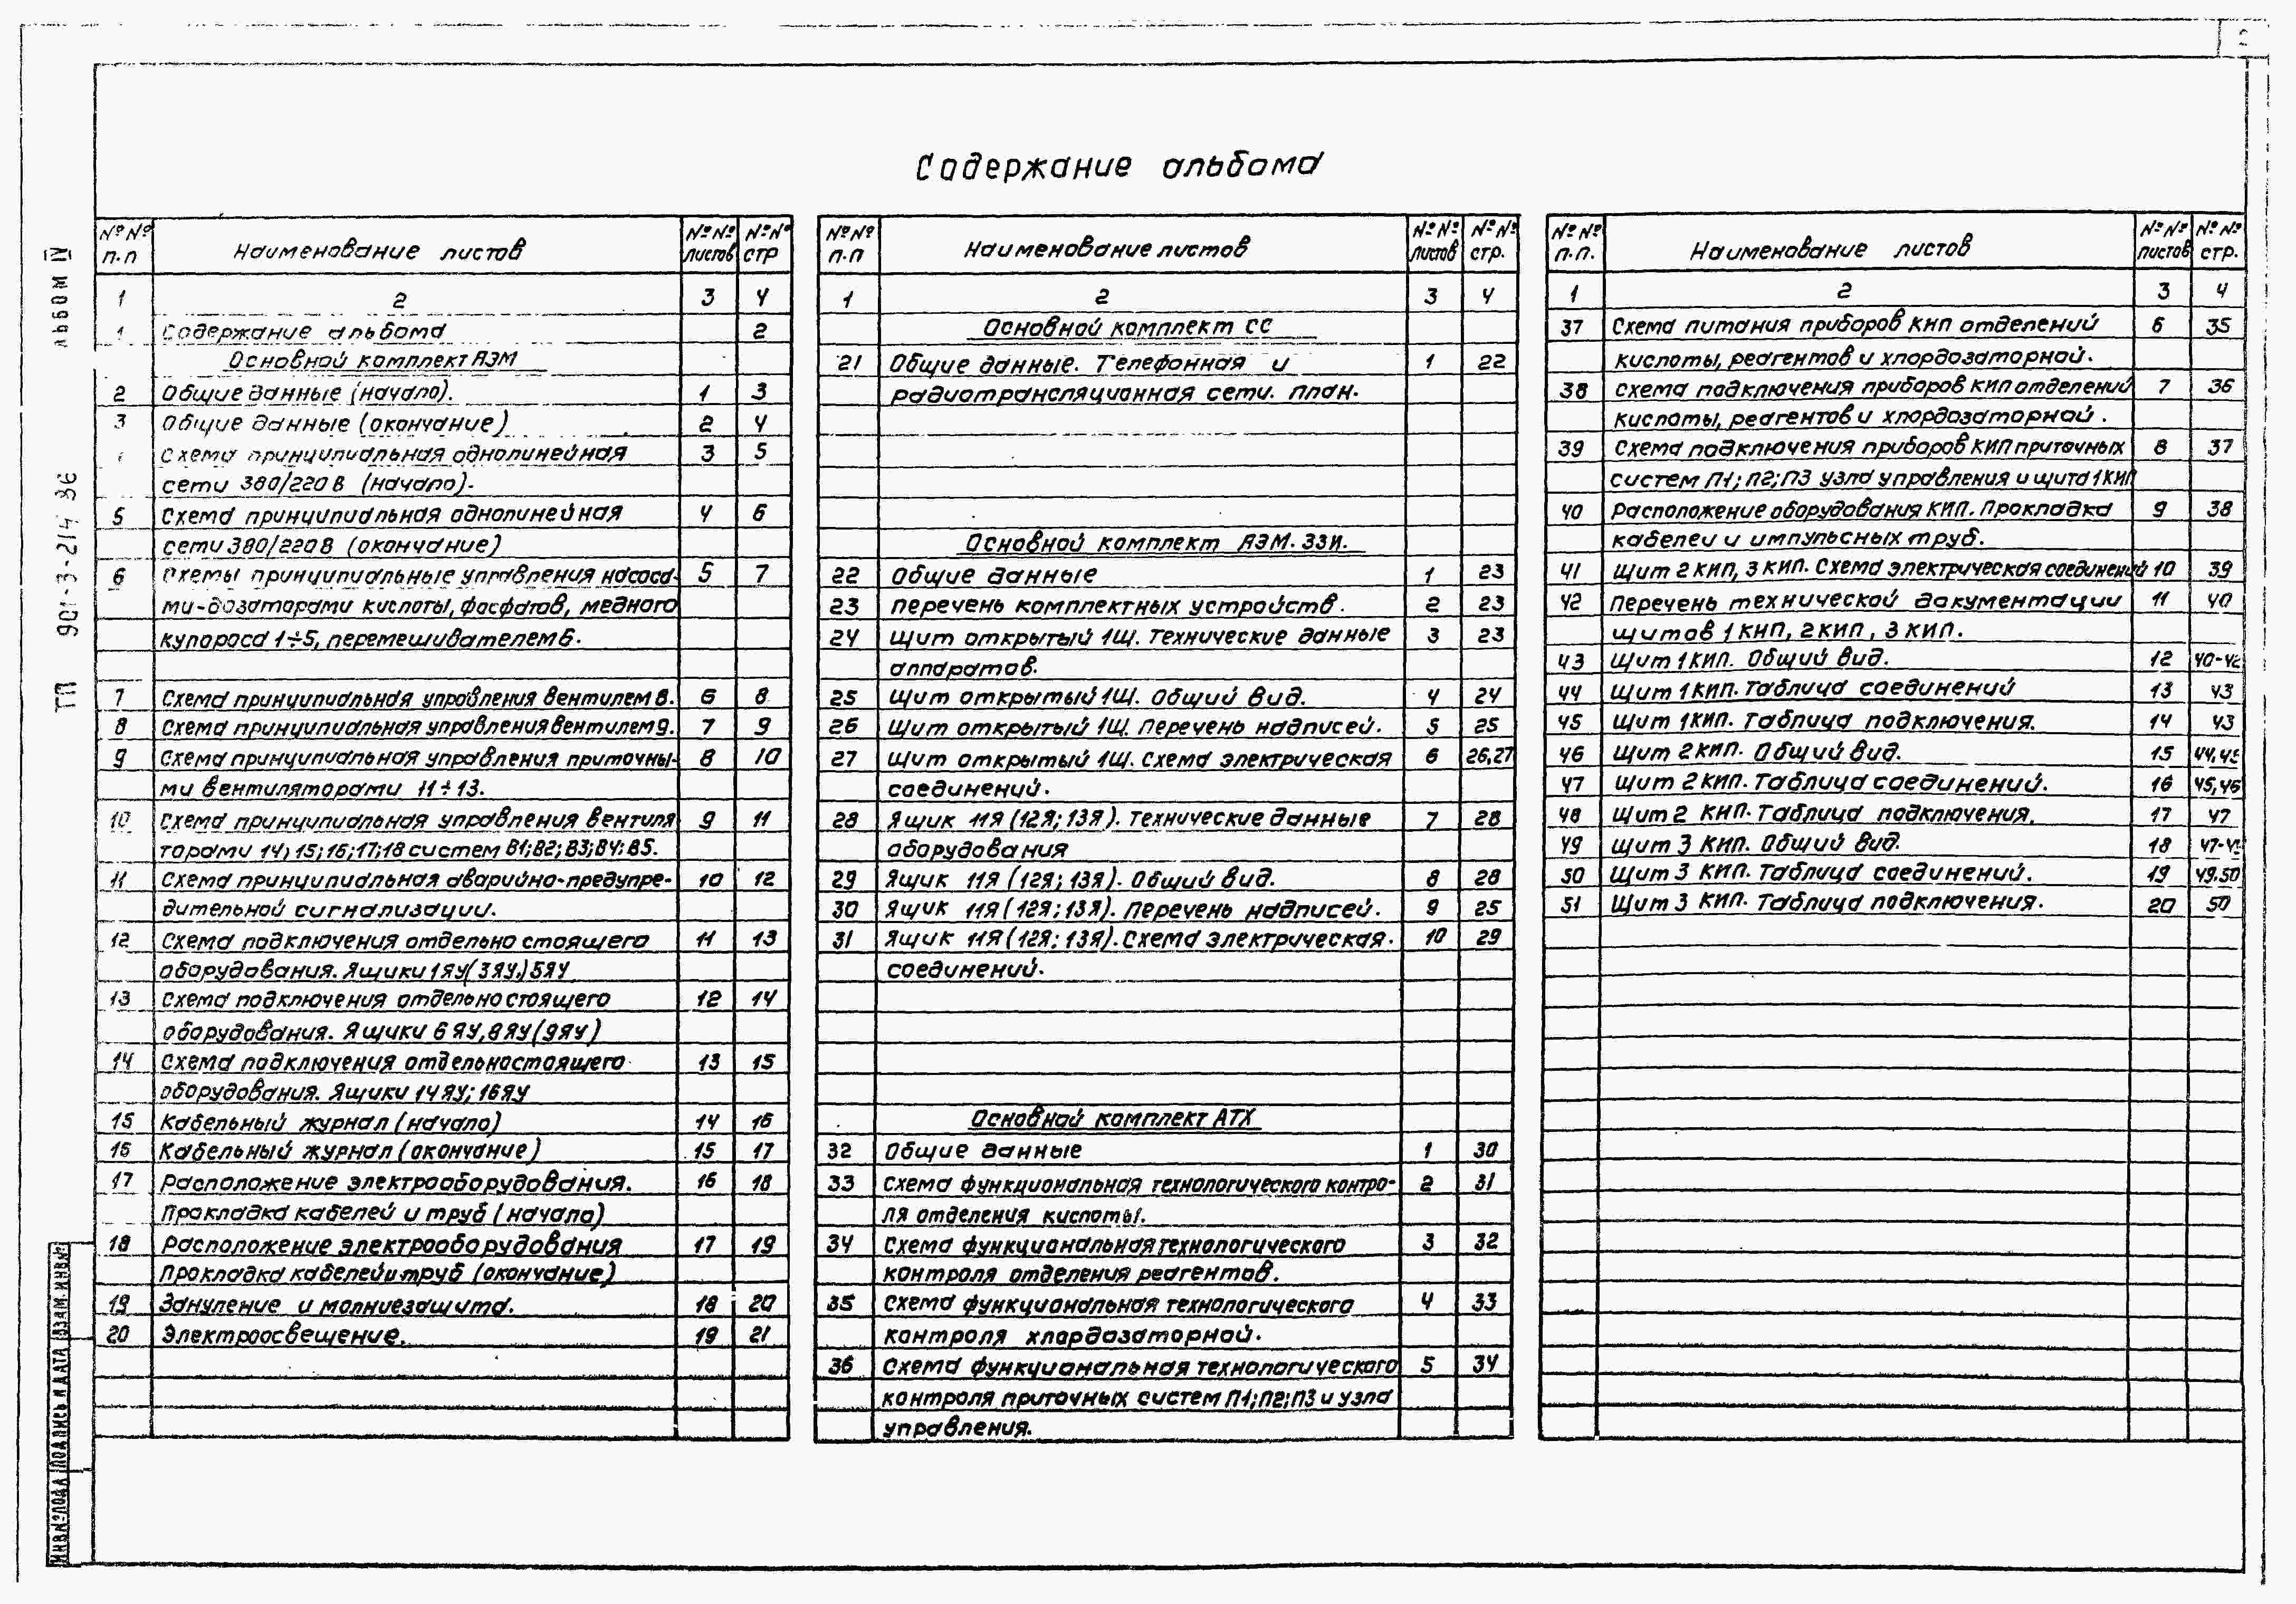 2
Содержание альбома
альбом IV
ТП 901-3-214 86
№№ п.п Наименование листов №№ листов №№ стр
1 2 3 4
1 Содержание альбома 2
Основной комплект АЭМ
2 Общие данные (начало). 1 3
3 Общие данные (окончание) 2 4
Схема принципиальная однолинейная 3 5
сети 380/220 В (начало).
5 Схема принципиальная однолинейная 4 6
сети 380/220 В (окончание)
6 Схемы принципиальные управления насоса- 5 7
ми-дозаторами кислоты, фосфатов, медного
купороса 1÷5, перемешивателем 6.
7 Схема принципиальная управления вентилем 8. 6 8
8 Схема принципиальная управления вентилем 9. 7 9
9 Схема принципиальная управления приточны- 8 10
ми вентиляторами 11÷13.
10 Схема принципиальная управления вентиля 9 11
торами 14; 15; 16; 17; 18 систем В1; В2; В3; В4; В5.
11 Схема принципиальная аварийно-предупре- 10 12
дительной сигнализации.
12 Схема подключения отдельно стоящего 11 13
оборудования. Ящики 1ЯУ(3ЯУ,) 5ЯУ
13 Схема подключения отдельно стоящего 12 14
оборудования. Ящики 6 ЯУ, 8 ЯУ (9ЯУ)
14 Схема подключения отдельностоящего 13 15
оборудования. Ящики 14 ЯУ; 16 ЯУ
15 Кабельный журнал (начало) 14 16
16 Кабельный журнал (окончание) 15 17
17 Расположение электрооборудования. 16 18
Прокладка кабелей и труб (начало)
18 Расположение электрооборудования 17 19
Прокладка кабелей и труб (окончание)
19 Зануление и молниезащита. 18 20
20 Электроосвещение. 19 21
№№ п.п Наименование листов №№ листов №№ стр.
1 2 3 4
Основной комплект СС
21 Общие данные. Телефонная и 1 22
радиотрансляционная сети. План.
Основной комплект АЭМ. ЗЗИ.
22 Общие данные 1 23
23 перечень комплектных устройств. 2 23
24 Щит открытый 1Щ. Технические данные 3 23
аппаратов.
25 Щит открытый 1Щ. Общий вид. 4 24
26 Щит открытый 1Щ. Перечень надписей. 5 25
27 Щит открытый 1Щ. Схема электрическая 6 26,27
соединений.
28 Ящик 11Я (12Я; 13Я). Технические данные 7 28
оборудования
29 Ящик 11Я (12Я; 13Я). Общий вид. 8 28
30 Ящик 11Я (12Я; 13Я). Перечень надписей. 9 25
31 Ящик 11Я (12Я; 13Я). Схема электрическая. 10 29
соединений.
Основной комплект АТХ
32 Общие данные 1 30
33 Схема функциональная технологического контро- 2 31
ля отделения кислоты.
34 Схема функциональная технологического 3 32
контроля отделения реагентов.
35 Схема функциональная технологического 4 33
контроля хлордозаторной.
36 Схема функциональная технологического 5 34
контроля приточных систем П1; П2; П3 и узла
управления.
№№ п.п. Наименование листов №№ листов №№ стр.
1 2 3 4
37 Схема питания приборов КИП отделений 6 35
кислоты, реагентов и хлордозаторной.
38 схема подключения приборов КИП отделений 7 36
кислоты, реагентов и хлордозаторной.
39 Схема подключения приборов КИП приточных 8 37
систем П1; П2; П3 узла управления и щита 1 КИП
40 Расположение оборудования КИП. Прокладка 9 38
кабелей и импульсных труб.
41 Щит 2 КИП, 3 КИП. Схема электрическая соединений 10 39
42 Перечень технической документации 11 40
щитов 1 КИП, 2 КИП, 3 КИП.
43 Щит 1 КИП. Общий вид. 12 40-42
44 Щит 1 КИП. Таблица соединений 13 43
45 Щит 1 КИП. Таблица подключения. 14 43
46 Щит 2 КИП. Общий вид. 15 44,45
47 Щит 2 КИП. Таблица соединений. 16 45,46
48 Щит 2 КИП. Таблица подключения. 17 47
49 Щит 3 КИП. Общий вид. 18
50 Щит 3 КИП. Таблица соединений. 19 49.50
51 Щит 3 КИП. Таблица подключения. 20 50
ИНВ№ПОДЛ ПОДПИСЬ И ДАТА ВЗАМ.ИНВ№